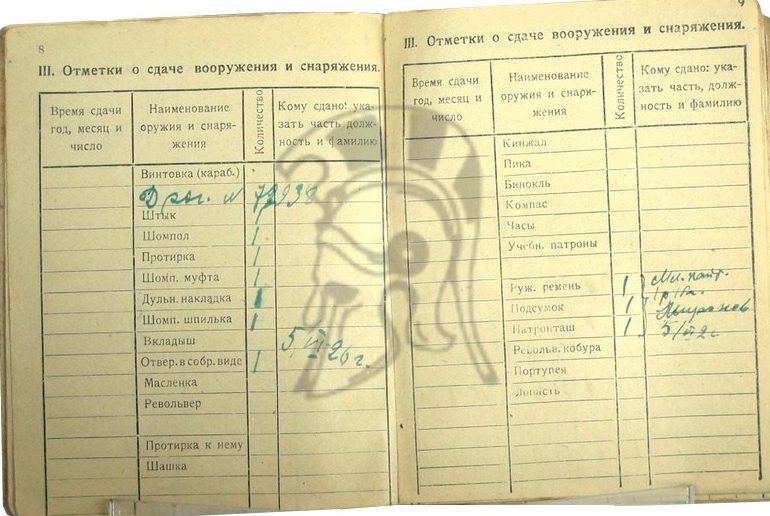 8
III. Отметки о сдаче вооружения и снаряжения.
Время сдачи год, месяц и число
Наименование оружия и снаря- жения
Количество
Кому сдано: ука- зать часть, долж- ность и фамилию
Винтовка (караб.)
Драг. № 79938
Штык 1
Шомпол 1
Протирка 1
Шомп. муфта 1
Дульн. накладка 1
Шомп. шпилька 1
Вкладыш
5/VI-26 г.
Отвер. в собр. виде 1
Масленка
Револьвер
Протирка к нему
Шашка
9
III. Отметки о сдаче вооружения и снаряжения.
Время сдачи год, месяц и число
Наименование оружия и снаря- жения
Количество
Кому сдано: ука- зать часть, долж- ность и фамилию
Кинжал
Пика
Бинокль
Компас
Часы
Учебн. патроны
Руж. ремень 1
Подсумок 1
Патронташ 1
Револьв. кобура
Портупея
Лопасть